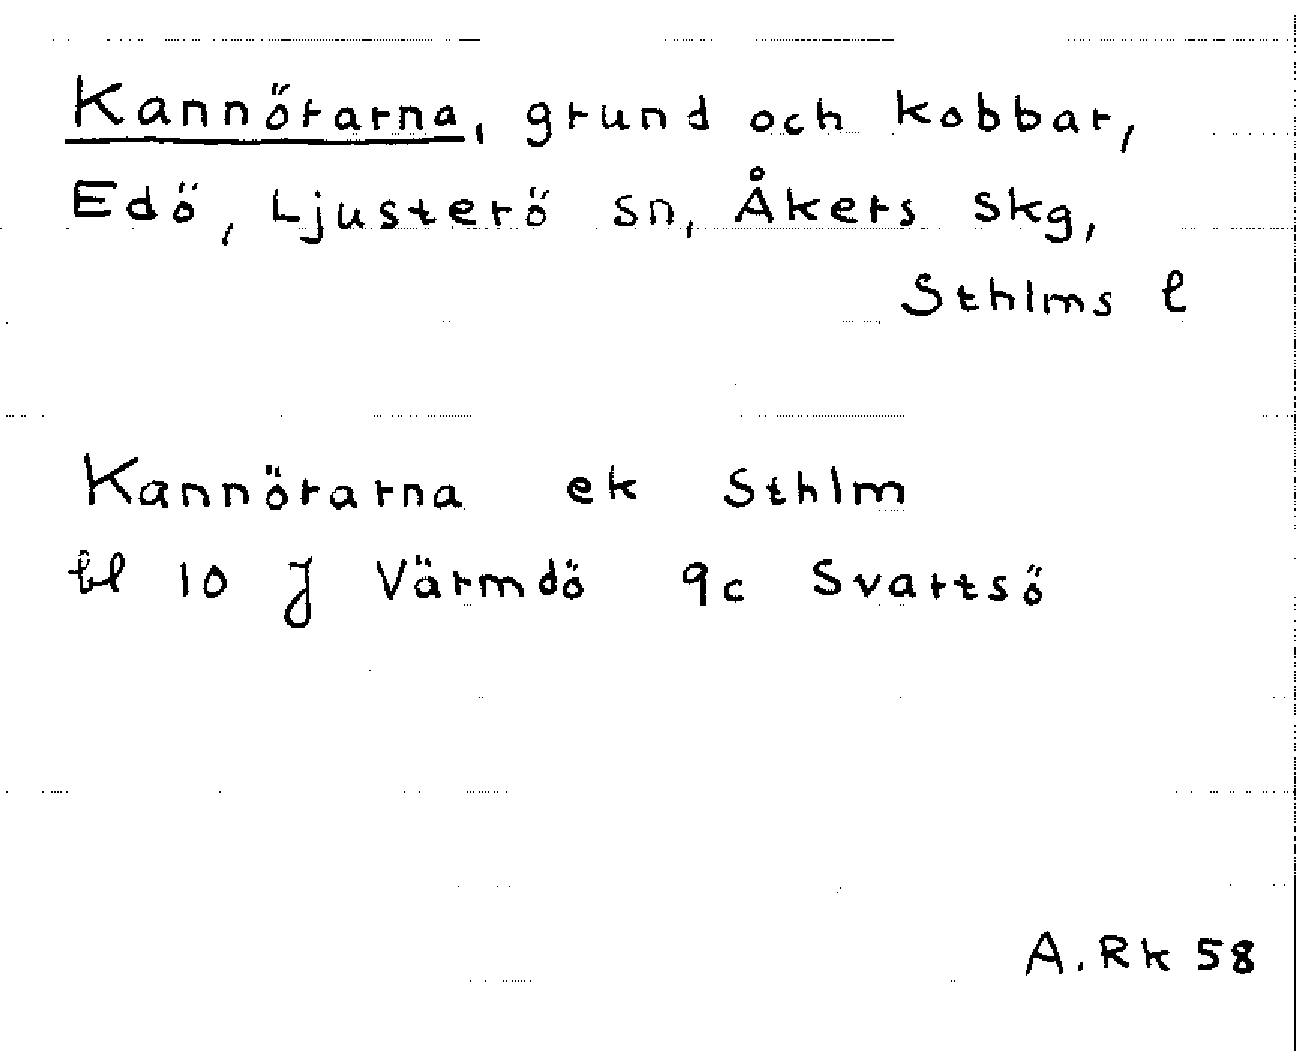 Kannörarna, grund och kobbar,
Edö, Ljusterö sn, Åkers skg,
Sthlms l
Kannörarna ek Sthlm
bl 10 J Värmdö 9c Svartsö
A. Rk 58